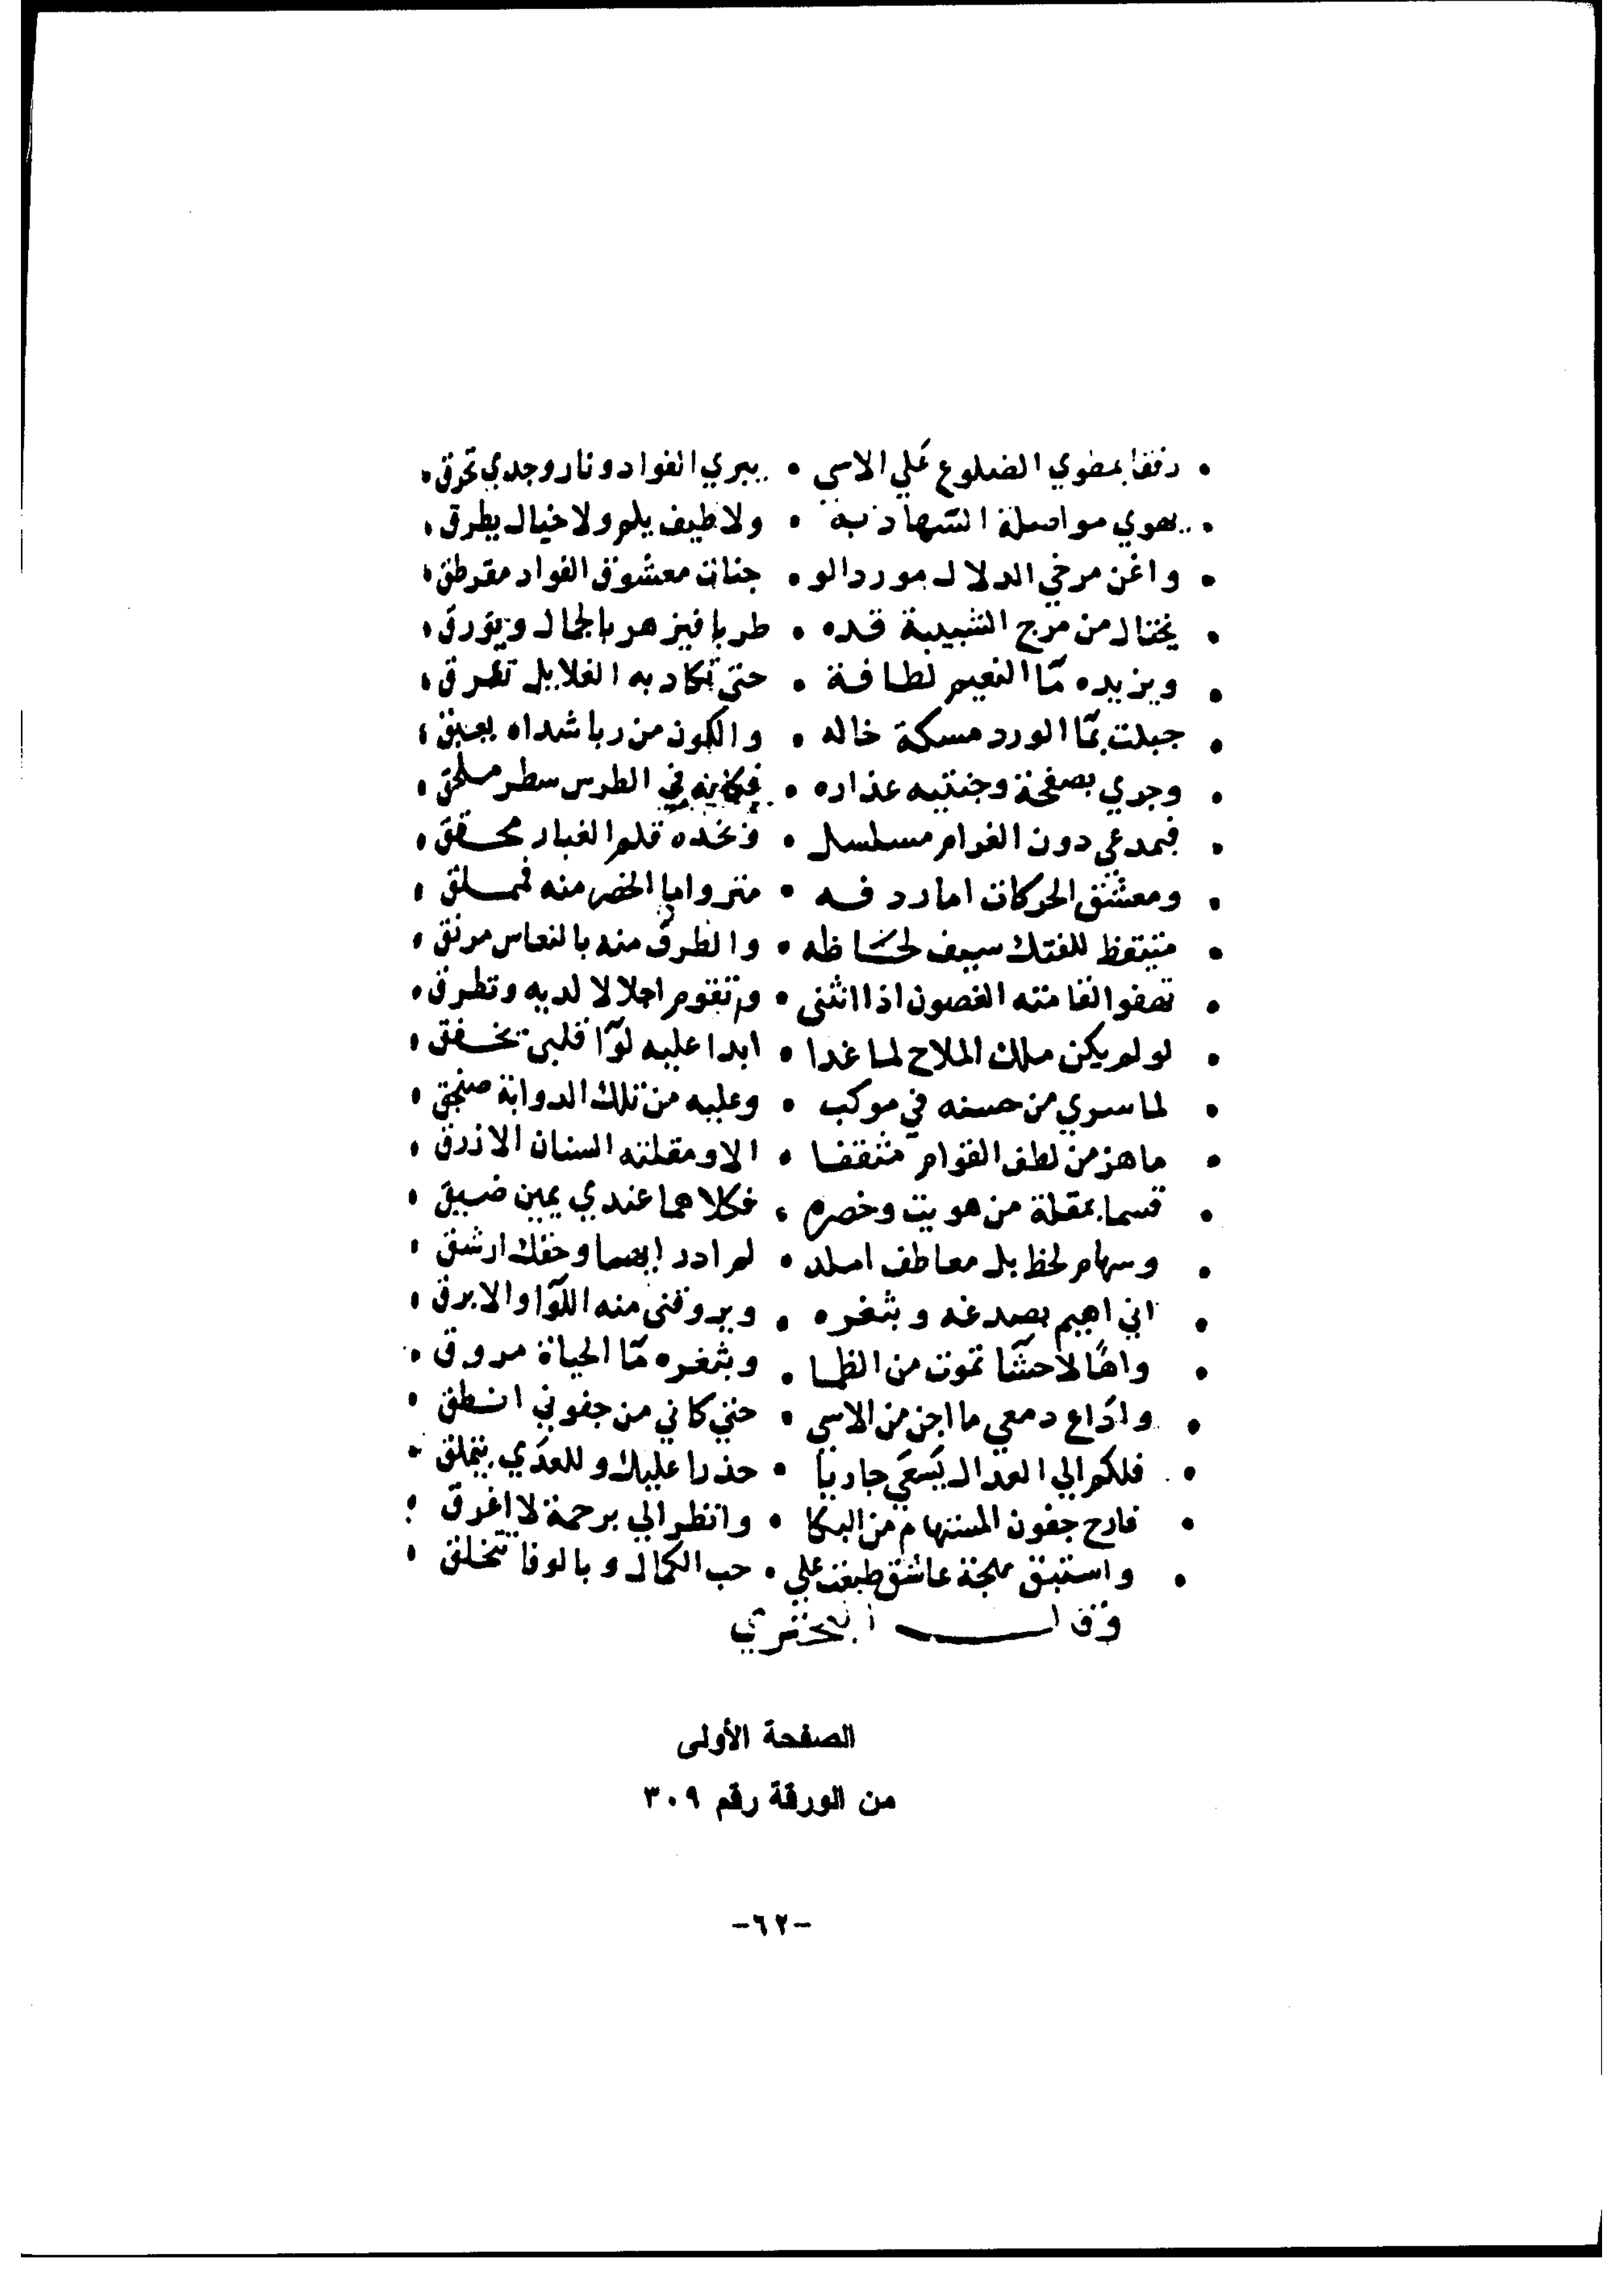 رفقا بمطوي الضلوع علي الاسي • يبري الفواد ونار وجدي تحرق
يهوي مواصلة السهاد به • ولا طيف يلم ولا خيال يطرق
واغن مرخي الدلال مورد الو • جنات معشوق الفواد مقرطق
يختال من مرح الشبيبة قده • طربا فيزهر بالجمال ويورق
ويزيده مآ النعيم لطافة • حتي تكاد به الغلايل تغرق
جبلت بمآ الورد مسكة خاله • والكون من ريا شداه يعبق
وجري بصفحة وجنتيه عذاره • في الطرس سطر ملحق
فبمدمعي دون الغرام مسلسل • وبخده قلم الغبار محقق
ومعشق الحركات اما ردفه • منه فمملق
متيقظ للفتك سيف لحاظه • والطرف منه بالنعاس مرنق
تصفوا لقامته الغصون اذا انثنى • وتقوم اجلالا لديه وتطرق
لو لم يكن ملك الملاح لما غدا • ابدا عليه لوآ قلبي يخفق
لما سري من حسنه في موكب • وعليه من تلك الدوابة صنجق
ما هز من لطف القوام مثقفا • الا ومقلته السنان الازرق
قسما بمقلة من هويت وخصره • فكلاهما عندي يمين ضيق
وسهام لحظ بل معاطف املد • لم ادر ايهما وحقك ارشق
اني اهيم بصدغه وبثغره • ويروقني منه اللوآ والابرق
واهًا لاحشآ تموت من الظما • وبثغره مآ الحياة مروق
واذاع دمعي ما اجن من الاسي • حتي كاني من جفوني انطق
فلكم الي العدال يسعي جاريا • حذرا عليك وللعدي يتملق
فارح جفون المستهام من البكا • وانظر الي برحمة لا اغرق
واستبق مهجة عاشق طبعت علي • حب الكمال وبالوفا تتخلق
وقال البحتري
الصفحة الأولى
من الورقة رقم ٣٠٩
-٦٢-